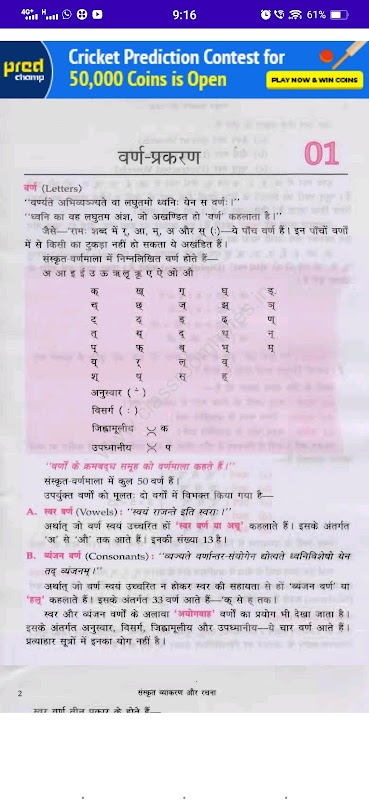 4G+ H
9:16
61%
pred
champ
Cricket Prediction Contest for
50,000 Coins is Open
PLAY NOW & WIN COINS
वर्ण-प्रकरण
01
वर्ण (Letters)
"वर्ण्यते अभिव्यञ्ज्यते वा लघुतमो ध्वनिः येन स वर्णः।"
"ध्वनि का वह लघुतम अंश, जो अखण्डित हो 'वर्ण' कहलाता है।"
जैसे—'रामः शब्द में र्, आ, म्, अ और स् (:)—ये पाँच वर्ण हैं। इन पाँचों वर्णों
में से किसी का टुकड़ा नहीं हो सकता ये अखंडित हैं।
संस्कृत-वर्णमाला में निम्नलिखित वर्ण होते हैं—
अ आ इ ई उ ऊ ऋ लृ ॠ ए ऐ ओ औ
क् ख् ग् घ् ङ्
च् छ् ज् झ् ञ्
ट् ठ् ड् ढ् ण्
त् थ् द् ध् न्
प् फ् ब् भ् म्
य् र् ल् व्
श् ष् स् ह्
अनुस्वार ( ं )
विसर्ग ( : )
जिह्वामूलीय क
उपध्मानीय प
"वर्णों के क्रमबद्ध समूह को वर्णमाला कहते हैं।"
संस्कृत-वर्णमाला में कुल 50 वर्ण हैं।
उपर्युक्त वर्णों को मूलतः दो वर्गों में विभक्त किया गया है—
A. स्वर वर्ण (Vowels) : "स्वयं राजन्ते इति स्वराः।"
अर्थात् जो वर्ण स्वयं उच्चरित हों 'स्वर वर्ण या अच्' कहलाते हैं। इसके अंतर्गत
'अ' से 'औ' तक आते हैं। इनकी संख्या 13 है।
B. व्यंजन वर्ण (Consonants) : "व्यज्यते वर्णान्तर-संयोगेन द्योत्यते ध्वनिविशेषो येन
तद् व्यंजनम्।"
अर्थात् जो वर्ण स्वयं उच्चरित न होकर स्वर की सहायता से हों 'व्यंजन वर्ण' या
'हल्' कहलाते हैं। इसके अंतर्गत 33 वर्ण आते हैं—'क् से ह् तक।
स्वर और व्यंजन वर्णों के अलावा 'अयोगवाह' वर्णों का प्रयोग भी देखा जाता है।
इसके अंतर्गत अनुस्वार, विसर्ग, जिह्वामूलीय और उपध्मानीय—ये चार वर्ण आते हैं।
प्रत्याहार सूत्रों में इनका योग नहीं है।
2 संस्कृत व्याकरण और रचना
स्वर वर्ण तीन प्रकार के होते हैं—